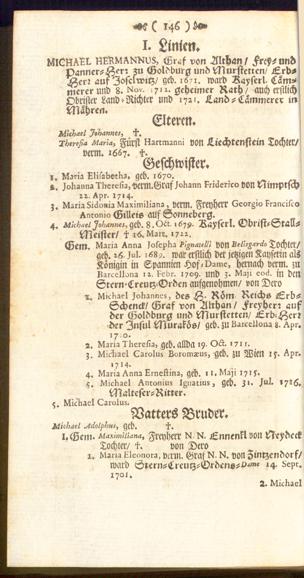 ( 146 )
I. Linien.
MICHAEL HERMANNUS, Graf von Althan/ Frey- und
Panner-Herr zu Goldburg und Murstetten/ Erb-
Herr auf Joselwitz/ geb. 1671. ward Kayserl. Cäm-
merer und 8. Nov. 1712. geheimer Rath/ auch erstlich
Obrister Land-Richter und 1721. Land-Cämmerer in
Mähren.
Elteren.
Michael Johannes, †.
Theresa Maria, Fürst Hartmanni von Liechtenstein Tochter/
verm. 1667. †.
Geschwister.
1. Maria Elisabetha, geb. 1670.
2. Johanna Theresa, verm. Graf Johann Friderico von Nimptsch
22. Apr. 1714.
3. Maria Sidonia Maximiliana, verm. Freyherr Georgio Francisco
Antonio Gilleis auf Sonneberg.
4. Michael Johannes, geb. 8. Oct. 1679. Kayserl. Obrist-Stall-
Meister/ † 16. Mart. 1722.
Gem. Maria Anna Josepha Pignatelli von Bellisguardo Tochter/
geb. 26. Jul. 1689. war erstlich der jetzigen Kayserin als
Königin in Spannien Hof-Dame, hernach verm. zu
Barcellona 12. Febr. 1709. und 3. Maji eod. in den
Stern-Creutz-Orden aufgenohmen/ von Dero
1. Michael Johannes, des H. Röm. Reichs Erb-
Schenck/ Graf von Althan/ Freyherr auf
der Goldburg und Murstetten/ Erb-Herr
der Insul Murakös/ geb. zu Barcellona 8. Apr.
1710.
2. Maria Theresa, geb. allda 19. Oct. 1711.
3. Michael Carolus Boromæus, geb. zu Wien 15. Apr.
1714.
4. Maria Anna Ernestina, geb. 11. Maji 1715.
5. Michael Antonius Ignatius, geb. 31. Jul. 1716.
Malteser-Ritter.
5. Michael Carolus.
Vatters Bruder.
Michael Adolphus, geb. †.
1. Gem. Maximiliana, Freyherr N. N. Ennenkl von Neydeck
Tochter/ †. von Dero
1. Maria Eleonora, verm. Graf N. N. von Zintzendorf/
ward Stern-Creutz-Ordens-Dame 14. Sept.
1701.
2. Michael